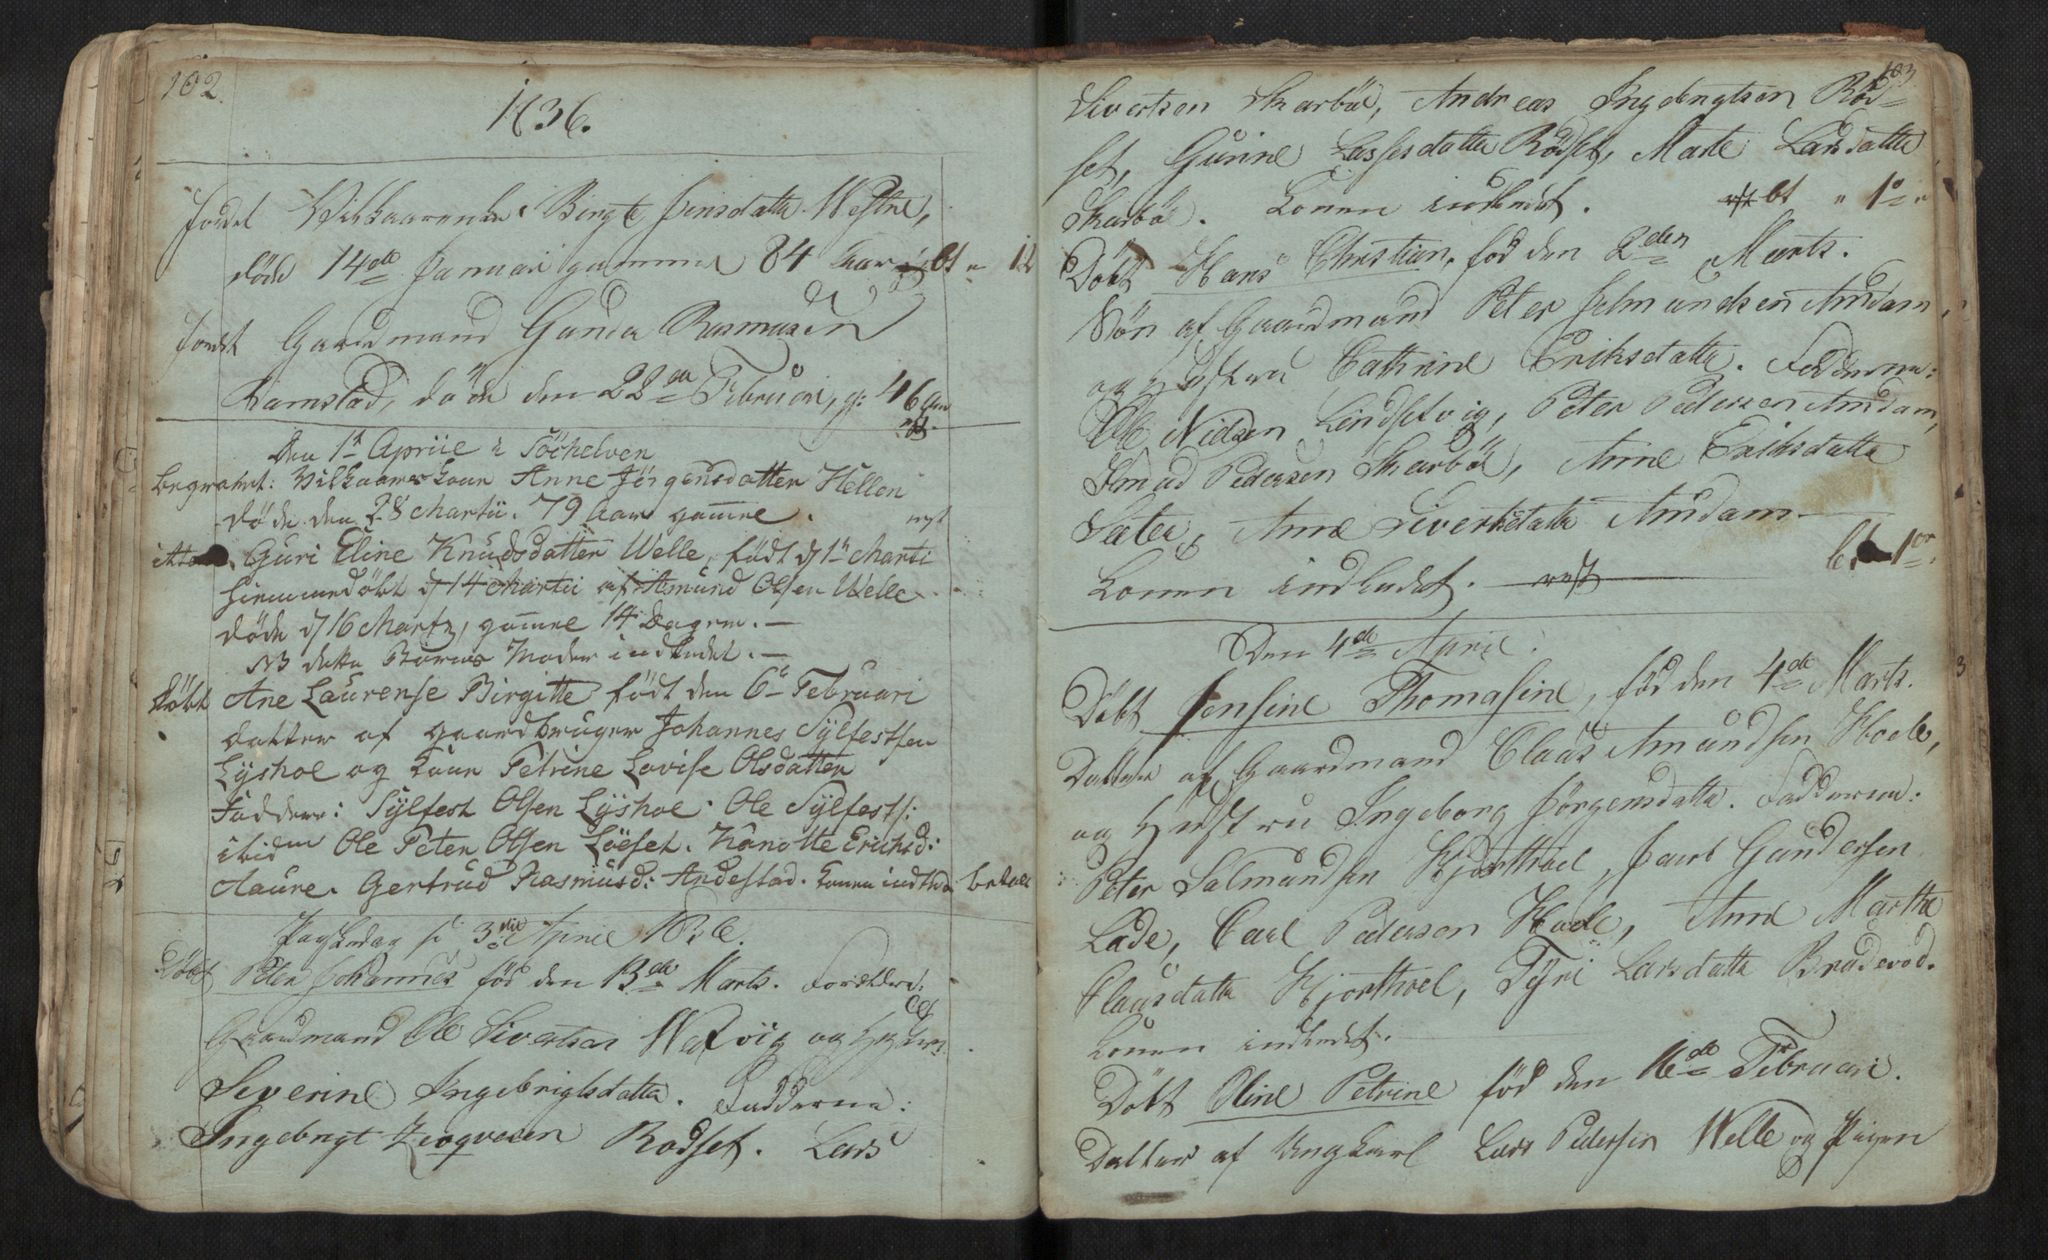 102.
1836.
Jordet Vilkaarenke Bergte Jensdatter Westre,
døde 14de Januari gammel 84 Aar bt " 12
Jordet Gaardmand Gunder Rasmusen
Ramstad, døde den 22de Februari, g: 46 Aar
rest.
Den 1t Apriie i Söchelven
begravet: Vilkaarskone Anne Jörgensdatter Hellen
døde den 28 Martii. 79 Aar gamel. rest
Guri Eline Knudsdatter Welle, född d 1te Marti
hiemmedöbt d 14 Martii af Asmund Olsen Welle
døde d 16 Martz, gamel 14 Dagen. —
NB dette Barns Moder indledet. —
Döbt Ane Laurense Birgitte född den 6te Februari
datter af gaardbruger Johannes Sylfestsen
Lyshoe og kone Petrine Lovise Olsdatter
Faddere: Sylfest Olsen Lyshoe. Ole Sylfests:
ibidm Ole Peter Olsen Löeset. Hanotte Erichsd:
Aaure. Gertrud Rasmusd: Andestad. konen indledet betalt
Paaskedag d 3die April 1836.
Döbt Peter Johannes fød den 13de Marts. Forældre:
Gaardmand Ole Sivertsen Wefvig og Hustru
Severine Ingebrigtsdatter. Fadderne:
Ingebrigt Rodset. Lars
103
Sivertsen Skarbøe, Andreas Ingebrigtsen Rød-
set, Gurine Lassesdatter Rødset, Marte Larsdatter
Skarbøe. Konen indledet. bt " 1 "
Döbt Hans Christian, fød den 2den Marts.
Søn af Gaardmand Peter Amdam,
og Hustru Cathrine Eriksdatter. Fadderne:
Ole Nielsen Lindsetvig, Peter Pedersen Amdam,
Knud Pedersen Skarbøe, Anne Eriksdatter
Sæter, Anne Sivertsdatter Amdam
Konen indledet. rest bt 1 or.
Den 4de April.
Döbt Jensine Thomasine, fød den 4de Marts.
Datter af Gaardmand Claus Amundsen Hoele,
og Hustru Ingeborg Jørgensdatter. Fadderne:
Peter Salmundsen Hjorthoel, Jacob Gundersen
Lade, Carl Pedersen Hoele, Anne Marthe
Clausdatter Hjorthoel, Tyri Larsdatter Bradevod.
Konen indledet.
Döbt Oline Petrine fød den 16de Februari.
Datter af Ungkarl Lars Pedersen Welle og Pigen